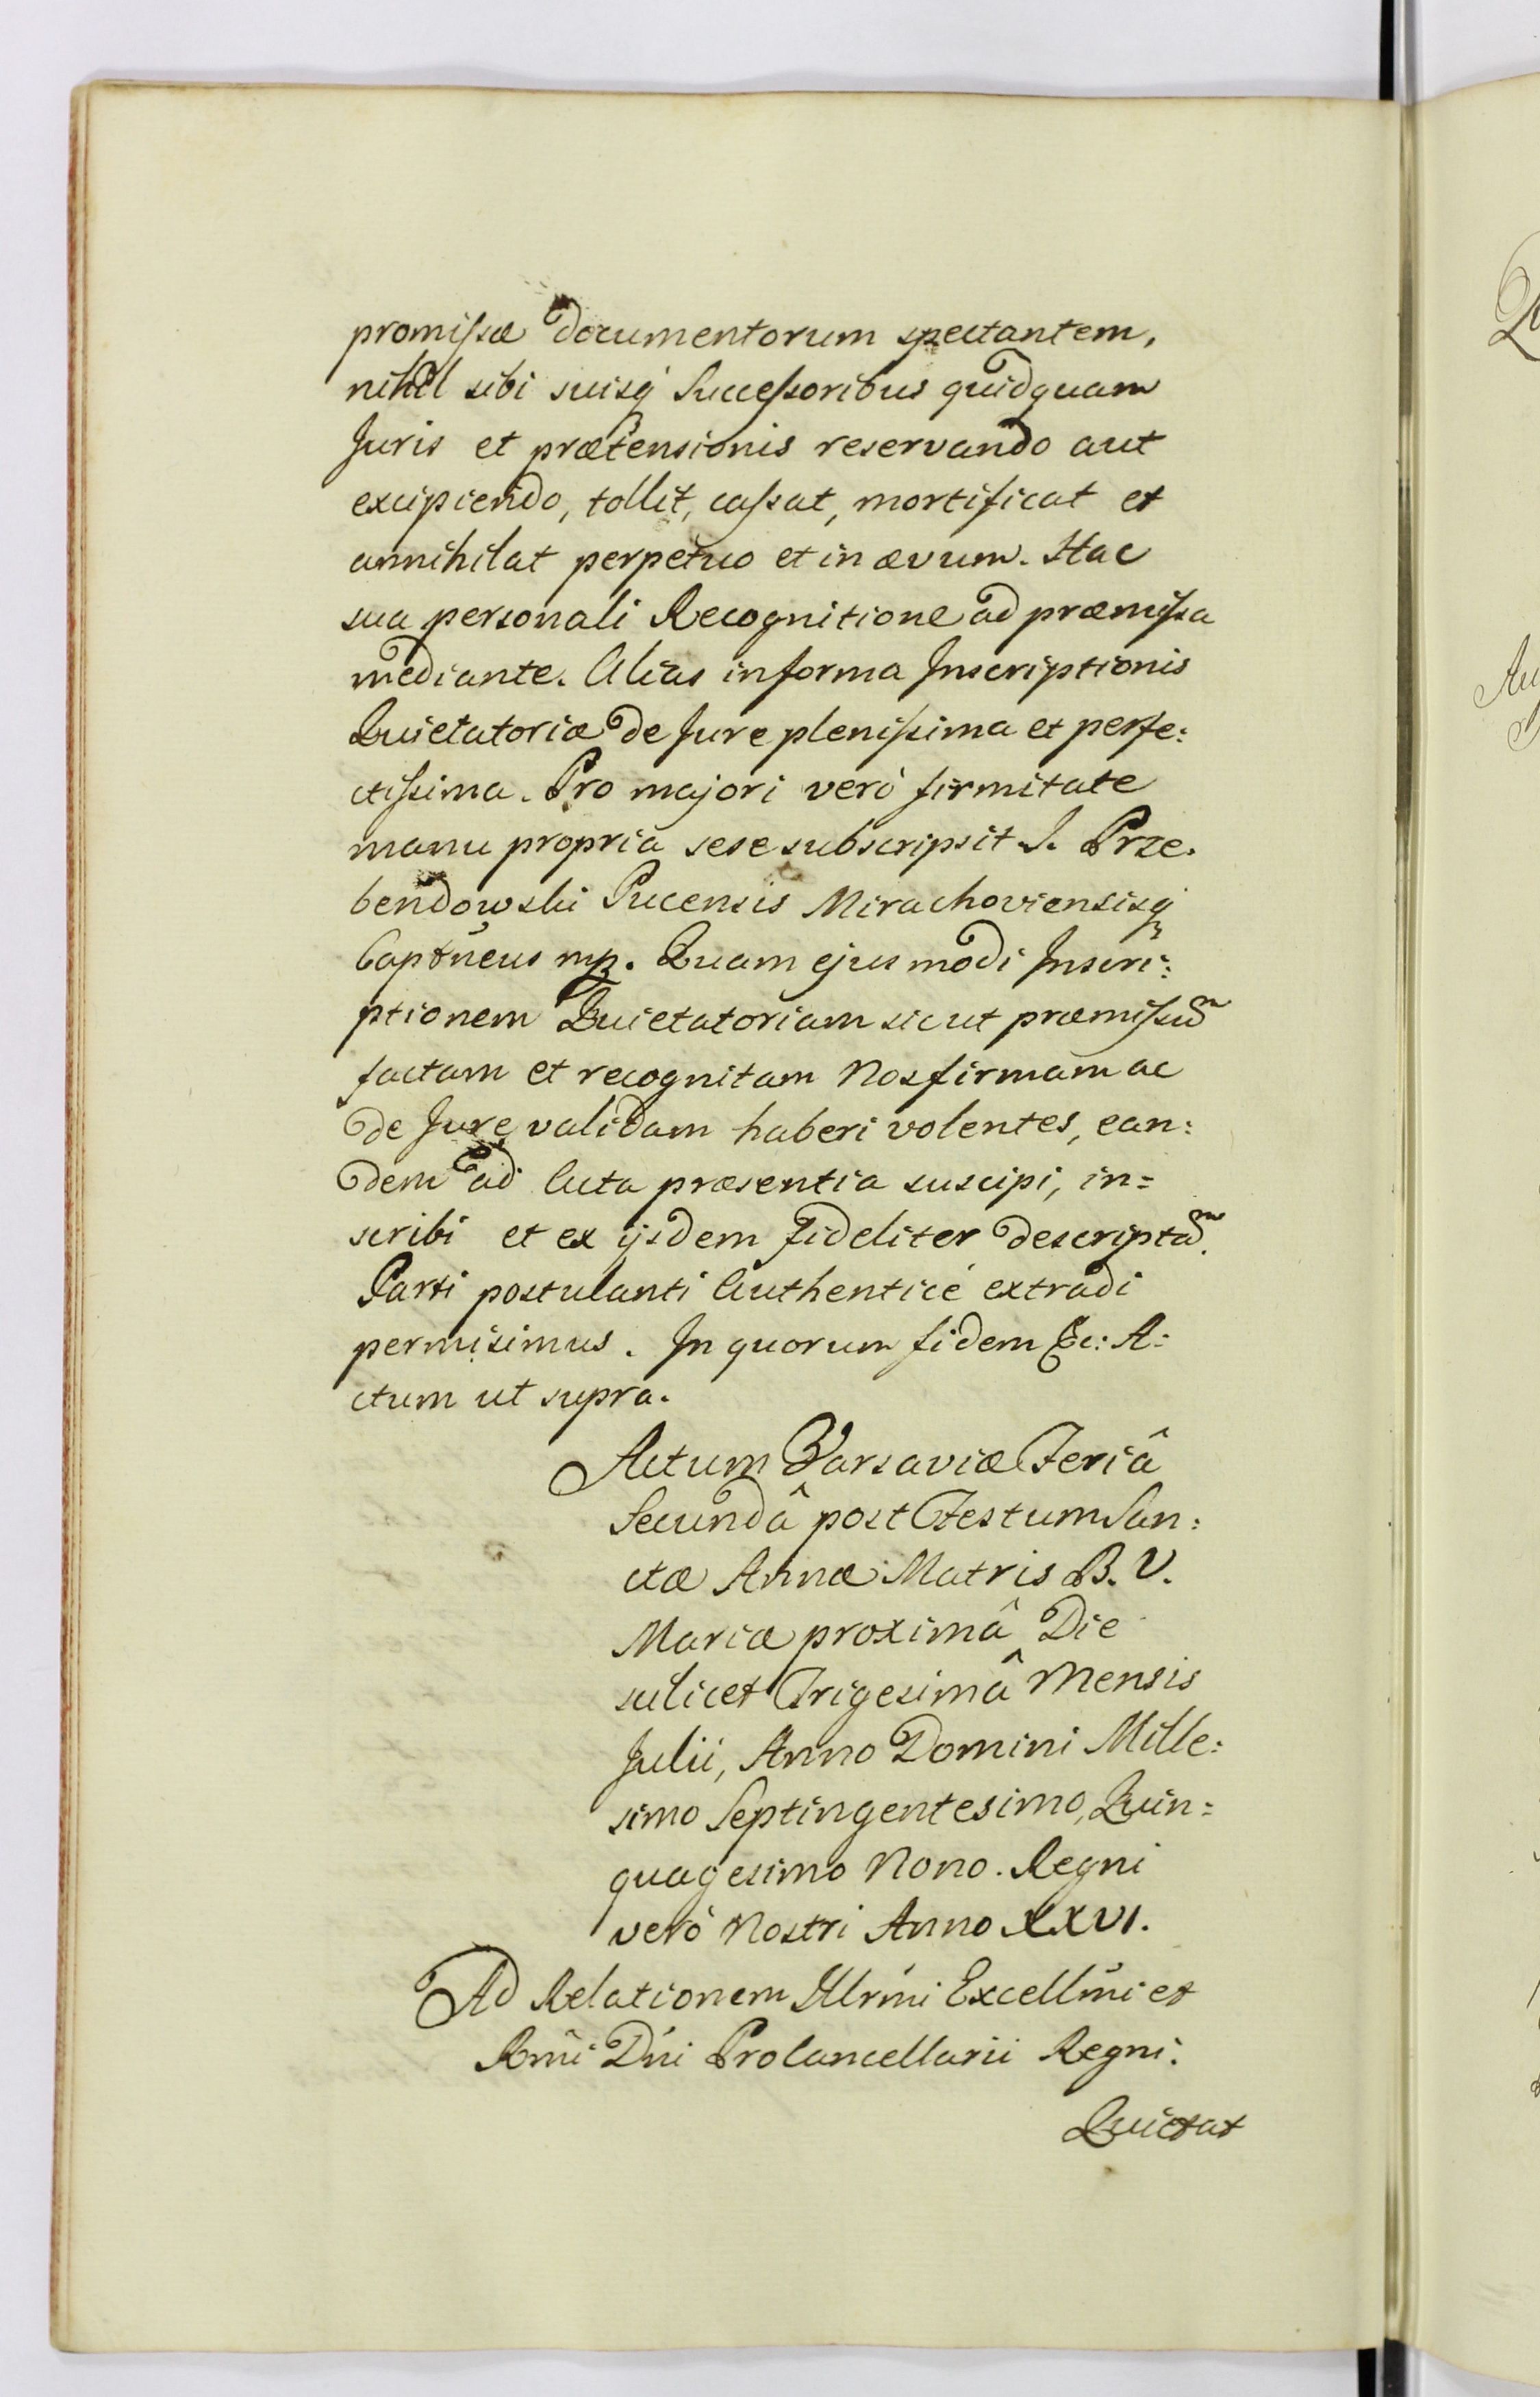 promissæ documentorum spectantem,
nihil sibi suisq́ Successoribus quidquam
Juris et prætensionis reservando aut
excipiendo, tollit, cassat, mortificat et
annihilat perpetuo et in ævum. Hac
sua personali Recognitione ad præmissa
mediante. Alias in forma Inscriptionis
Quietatoriæ de Jure plenissima et perfe:
ctissima. Pro majori verò firmitate
manu propria sese subscripsit J. Prze.
bendowski Pucensis Mirachoviensisq́
Captñeus mp. Quam ejusmodi Inscri:
ptionem Quietatoriam sicut præmissũ
factam et recognitam Nos firmam ac
de Jure validam haberi volentes, ean:
dem ad Acta præsentia suscipi, in=
scribi et ex ijsdem fideliter descriptã
Parti postulanti Authenticé extradi
permisimus. In quorum fidem &c: A:
ctum ut supra.
Actum Varsaviæ Feriâ
Secundâ post Festum San:
ctæ Annæ Matris B. V.
Mariæ proximâ Die
scilicet Trigesimâ Mensis
Julii, Anno Domini Mille:
simo Septingentesimo, Quin=
quagesimo Nono. Regni
verò Nostri Anno XXVI.
Ad Relationem Illrm̃i Excellm̃i et
Rm̃i Dñi Procancellarii Regni.
Quietat